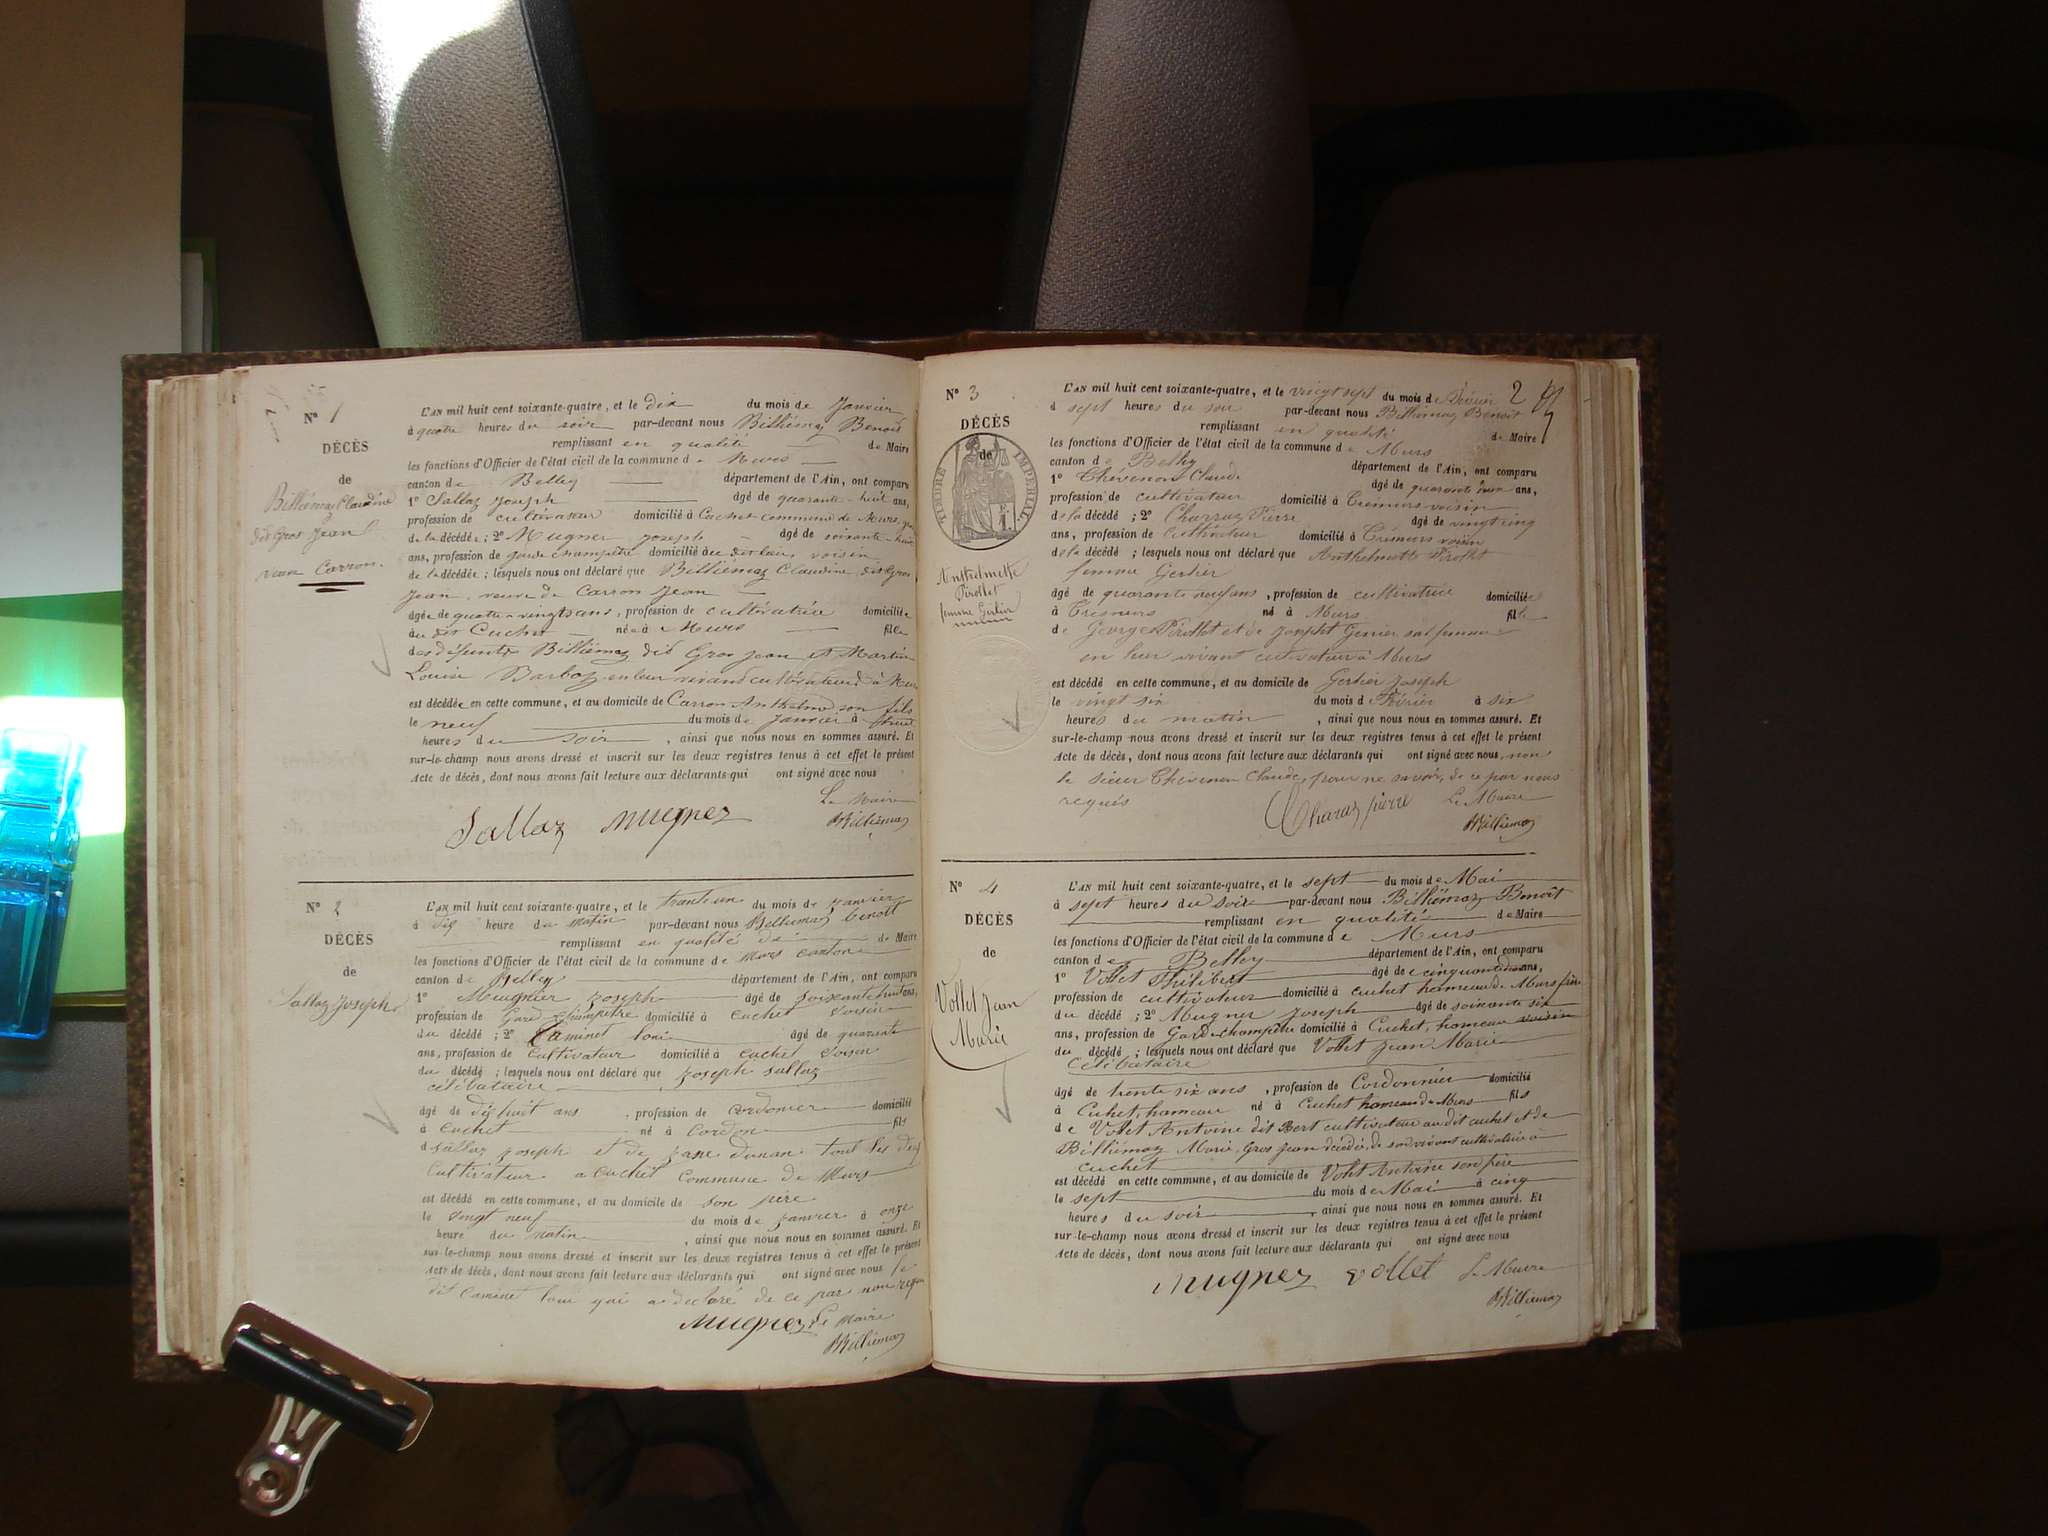 N° 1
DÉCÈS
de
Billiémaz Claudine
dit Gros Jean
veuve Carron.
L'AN mil huit cent soixante-quatre, et le dix du mois de Janvier
à quatre heures du soir par-devant nous Billiémaz Benoit
remplissant en qualité de Maire
les fonctions d'Officier de l'état civil de la commune de Murs
canton de Belley département de l'Ain, ont comparu
1° Sallaz Joseph âgé de quarante-huit ans,
profession de cultivateur domicilié à Cuchet commune de Murs,
de la décédée; 2° Mugner Joseph âgé de soixante-
ans, profession de garde champêtre domicilié au dit lieu, voisin
de la décédée; lesquels nous ont déclaré que Billiémaz Claudine dit Gros
Jean, veuve de Carron Jean
âgée de quatre-vingts ans, profession de cultivatrice domiciliée
au dit Cuchet née à Murs fille
des défunts Billiémaz dit Gros Jean et Martine
Louise Barboz en leur vivant cultivateurs à Murs
est décédée en cette commune, et au domicile de Carron Anthelme son fils
le neuf du mois de Janvier à
heures du soir, ainsi que nous nous en sommes assuré. Et
sur-le-champ nous avons dressé et inscrit sur les deux registres tenus à cet effet le présent
Acte de décès, dont nous avons fait lecture aux déclarants qui ont signé avec nous
Le Maire
Sallaz Mugnez Billiémaz
N° 2
DÉCÈS
de
Sallaz Joseph
L'AN mil huit cent soixante-quatre, et le trente un du mois de janvier
à dix heure du matin par-devant nous Billiemaz benoit
remplissant en qualité de de Maire
les fonctions d'Officier de l'état civil de la commune de Murs canton
canton de Belley département de l'Ain, ont comparu
1° Meugnier joseph âgé de soixante huit ans,
profession de Gard champêtre domicilié à cuchet voisin
du décédé; 2° Caminet loui âgé de quarante
ans, profession de Cultivateur domicilié à cuchet voisin
du décédé; lesquels nous ont déclaré que joseph sallaz
célibataire
âgé de dix huit ans, profession de cordonier domicilié
à cuchet né à Cordon fils
d sallaz joseph et de jane dunan tout les deux
Cultivateur a cuchet Commune de Murs
est décédé en cette commune, et au domicile de son père
le vingt neuf du mois de janvier à onze
heure du matin, ainsi que nous nous en sommes assuré. Et
sur-le-champ nous avons dressé et inscrit sur les deux registres tenus à cet effet le présent
Acte de décès, dont nous avons fait lecture aux déclarants qui ont signé avec nous le
dit Caminet loui qui a declaré de ce par nou requi
Mugnez Le Maire
Billiémaz
N° 3
DÉCÈS
de
TIMBRE IMPÉRIAL
Anthelmette
Pirollet
femme Gerlier
2
L'AN mil huit cent soixante-quatre, et le vingt sept du mois de Février
à sept heures du soir par-devant nous Billiémaz Benoit
remplissant en qualité de Maire
les fonctions d'Officier de l'état civil de la commune de Murs
canton de Belley département de l'Ain, ont comparu
1° Thévenon Claude âgé de quarante ans,
profession de cultivateur domicilié à Crémeurs voisin
de la décédé; 2° Charraz Pierre âgé de vingt cinq
ans, profession de cultivateur domicilié à Crémeurs voisin
de la décédé; lesquels nous ont déclaré que Anthelmette Pirollet
femme Gerlier
âgé de quarante neuf ans, profession de cultivatrice domiciliée
à Cremeurs né à Murs fille
de George Pirollet et de Josepht sa femme
en leur vivant cultivateur à Murs
est décédé en cette commune, et au domicile de Gerlier Joseph
le vingt six du mois de Février à six
heures du matin, ainsi que nous nous en sommes assuré. Et
sur-le-champ nous avons dressé et inscrit sur les deux registres tenus à cet effet le présent
Acte de décès, dont nous avons fait lecture aux déclarants qui ont signé avec nous, non
le sieur Thévenon Claude, pour ne savoir, de ce par nous
requis
Charaz pierre Le Maire
Billiémaz
N° 4
DÉCÈS
de
Vollet Jean
Marie
L'AN mil huit cent soixante-quatre, et le sept du mois de Mai
à sept heures du soir par-devant nous Billiémaz Benoît
remplissant en qualité de Maire
les fonctions d'Officier de l'état civil de la commune de Murs
canton de Belley département de l'Ain, ont comparu
1° Vollet Philibert âgé de cinquante ans,
profession de cultivateur domicilié à Cuchet hameau de Murs frère
du décédé; 2° Mugner Joseph âgé de soixante six
ans, profession de Garde champêtre domicilié à Cuchet, hameau voisin
du décédé; lesquels nous ont déclaré que Vollet Jean Marie
Célibataire
âgé de trente six ans, profession de Cordonnier domicilié
à Cuhet, hameau né à Cuchet hameau de Murs fils
de Vollet Antoine dit Bert cultivateur au dit cuchet et de
Billiémaz Marie, Gros Jean décédé, de son vivant cultivatrice à
cuchet
est décédé en cette commune, et au domicile de Vollet Antoine son père
le sept du mois de Mai à cinq
heures du soir, ainsi que nous nous en sommes assuré. Et
sur-le-champ nous avons dressé et inscrit sur les deux registres tenus à cet effet le présent
Acte de décès, dont nous avons fait lecture aux déclarants qui ont signé avec nous
Mugnez vollet Le Maire
Billiémaz